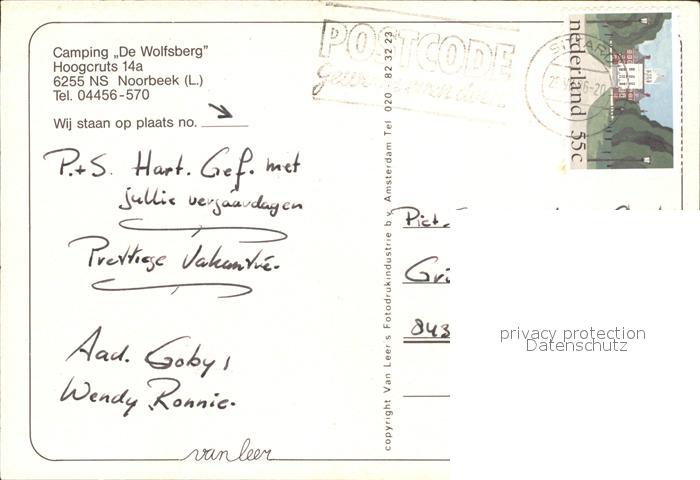 Camping „De Wolfsberg”
Hoogcruts 14a
6255 NS Noorbeek (L.)
Tel. 04456-570
Wij staan op plaats no.
P.+S. Hart. Gef. met
jullie verjaardagen
Prettige Vakantie.
Aad. Goby,
Wendy Ronnie.
van leer
copyright Van Leer's Fotodrukindustrie b.v. Amsterdam Tel 020 - 82 32 23
POSTCODE
nederland 55c
Piet.
Gri
843
privacy protection
Datenschutz